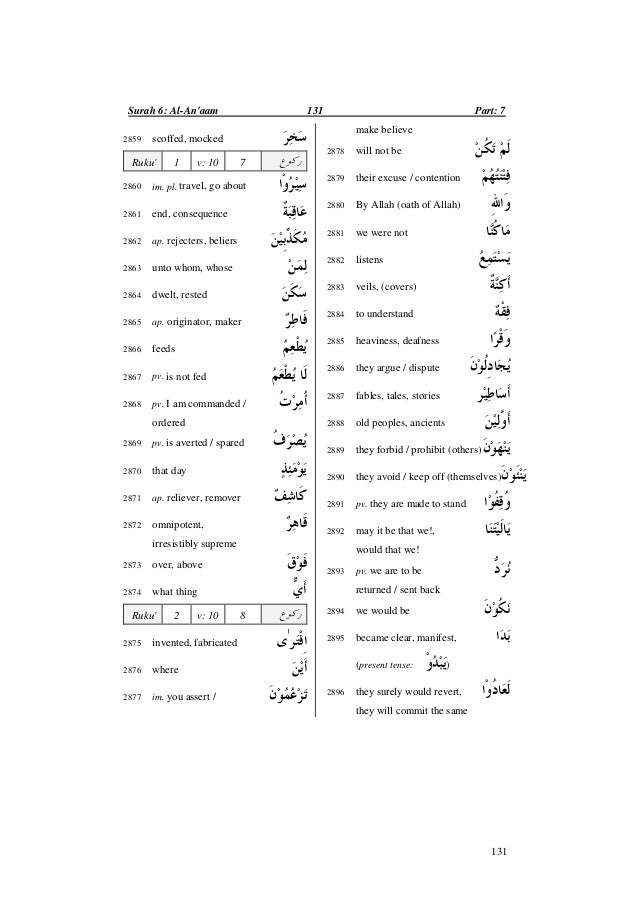 Surah 6: Al-An'aam 131 Part: 7
2859 scoffed, mocked سَخِرَ
Ruku' 1 v: 10 7 رکوع
2860 im, pl. travel, go about سِيْرُوْا
2861 end, consequence عَاقِبَةُ
2862 ap. rejecters, beliers مُكَذِّبِيْنَ
2863 unto whom, whose لِمَنْ
2864 dwelt, rested سَكَنَ
2865 ap. originator, maker فَاطِرُ
2866 feeds يُطْعِمُ
2867 pv. is not fed لَا يُطْعَمُ
2868 pv. I am commanded / أُمِرْتُ
ordered
2869 pv. is averted / spared يُصْرَفُ
2870 that day يَوْمَئِذٍ
2871 ap. reliever, remover كَاشِفٌ
2872 omnipotent, قَاهِرٌ
irresistibly supreme
2873 over, above فَوْقَ
2874 what thing أَيُّ
Ruku' 2 v: 10 8 رکوع
2875 invented, fabricated اِفْتَرٰى
2876 where أَيْنَ
2877 im. you assert / تَزْعُمُوْنَ
make believe
2878 will not be لَمْ تَكُنْ
2879 their excuse / contention فِتْنَتُهُمْ
2880 By Allah (oath of Allah) وَاللهِ
2881 we were not مَاكُنَّا
2882 listens يَسْتَمِعُ
2883 veils, (covers) أَكِنَّةً
2884 to understand فِقْهَ
2885 heaviness, deafness وَقْرًا
2886 they argue / dispute يُجَادِلُوْنَ
2887 fables, tales, stories أَسَاطِيْرُ
2888 old peoples, ancients أَوَّلِيْنَ
2889 they forbid / prohibit (others) يَنْهَوْنَ
2890 they avoid / keep off (themselves) يَنْئَوْنَ
2891 pv. they are made to stand وُقِفُوْا
2892 may it be that we!, يَالَيْتَنَا
would that we!
2893 pv. we are to be نُرَدُّ
returned / sent back
2894 we would be نَكُوْنَ
2895 became clear, manifest, بَدَا
(present tense: يَبْدُوْ)
2896 they surely would revert, لَعَادُوْا
they will commit the same
131